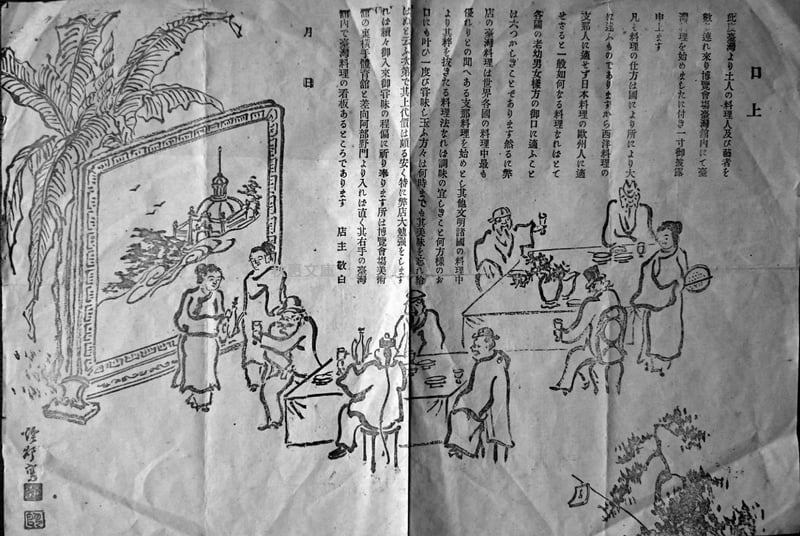 口上
此度臺灣より土人の料理人及び藝者を
數多連れ來り博覽會場臺灣館內にて臺
灣料理を始めましたに付き一寸御披露
申上ます
凡そ料理の仕方は國により所により大
に違ふものでありますから西洋料理の
支那人に適せず日本料理の歐州人に適
せざると一般如何なる料理なればとて
各國の老幼男女樣方の御口に適ふこと
は六つかしきことであります然るに弊
店の臺灣料理は世界各國の料理中最も
優れりとの聞へある支那料理を始めとし其他文明諸國の料理中
より其粹を拔きたる料理法なれば調味の宜しきこと何方樣のお
口にも叶ひ一度び賞味し玉ふ方々は何時までも其美味を忘れ給
はぬと云ふ次第で其上代價は頗る安く特に弊店大勉强をします
れば續々御入來御賞味の程偏に祈り奉ります所は博覽會場美術
館の裏橫手體育館と差向阿部野門より入れば直く其右手の臺灣
館內で臺灣料理の看板あるところであります
店主 敬白
月 日